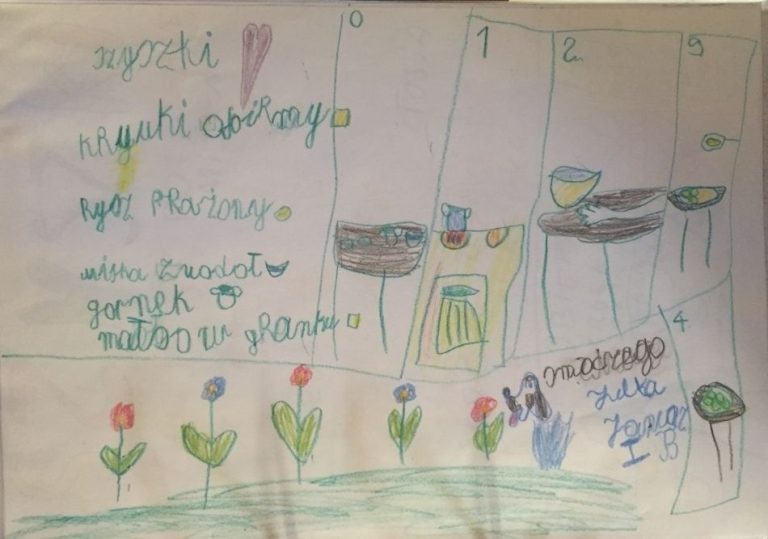 ryszki
kryuki opirmy
Rysz PRażony
miska zwodoł
gornek
matoo w gRanku
0
1
2
9
4
smacznego
Julka
I B